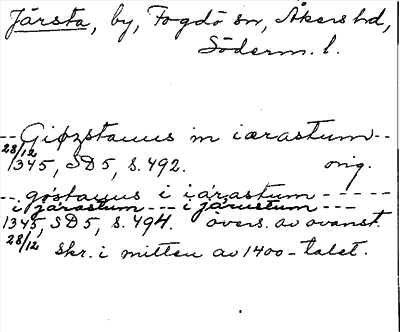 Järsta, by, Fogdö sn, Åkers hd,
Söderm. l.
-- Giøzstauus m iærastum --
28/12 1345, SD 5, s. 492. orig.
-- gøstauus i iärastum -----
i järastum --- i järustum ---
1345, SD 5, s. 494. övers. av ovanst.
28/12 skr. i mitten av 1400-talet.